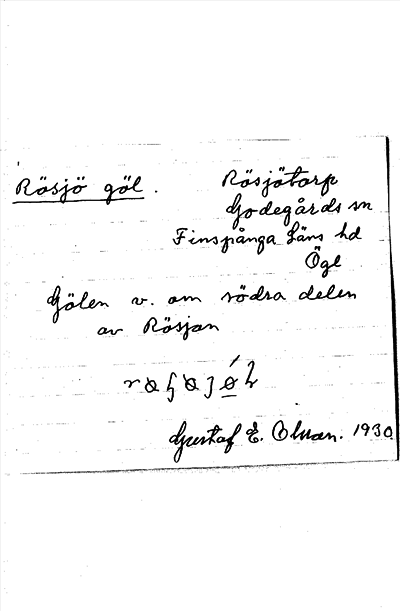 Rösjö göl.
Rösjötorp
Godegårds sn
Finspånga Läns hd
Ögl
Gölen v. om södra delen
av Rösjön
Gustaf E. 1930